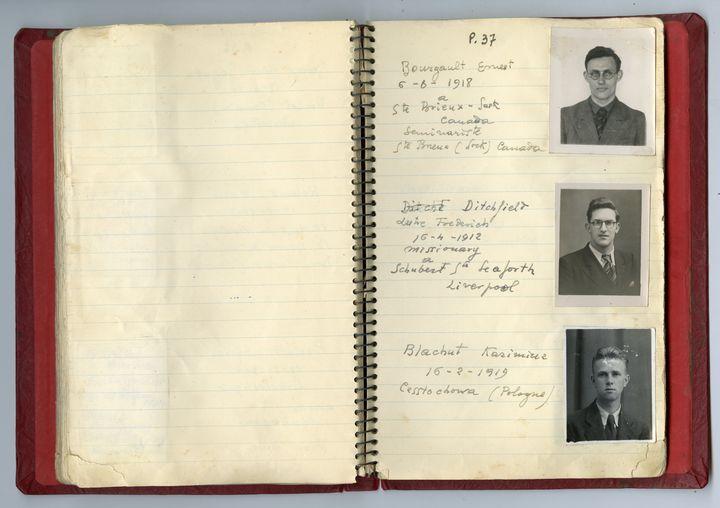 P. 37
Bourgault Ernest
6-6-1918
a
Ste Brieux - Sask
Canada
Seminariste
Ste Brieux (Sask) Canada
Ditchfield
Frederich
16-4-1912
missionary
a
Schubert St Seaforth
Liverpool
Blachut Kazimierz
16-2-1919
Cesstochowa (Pologne)